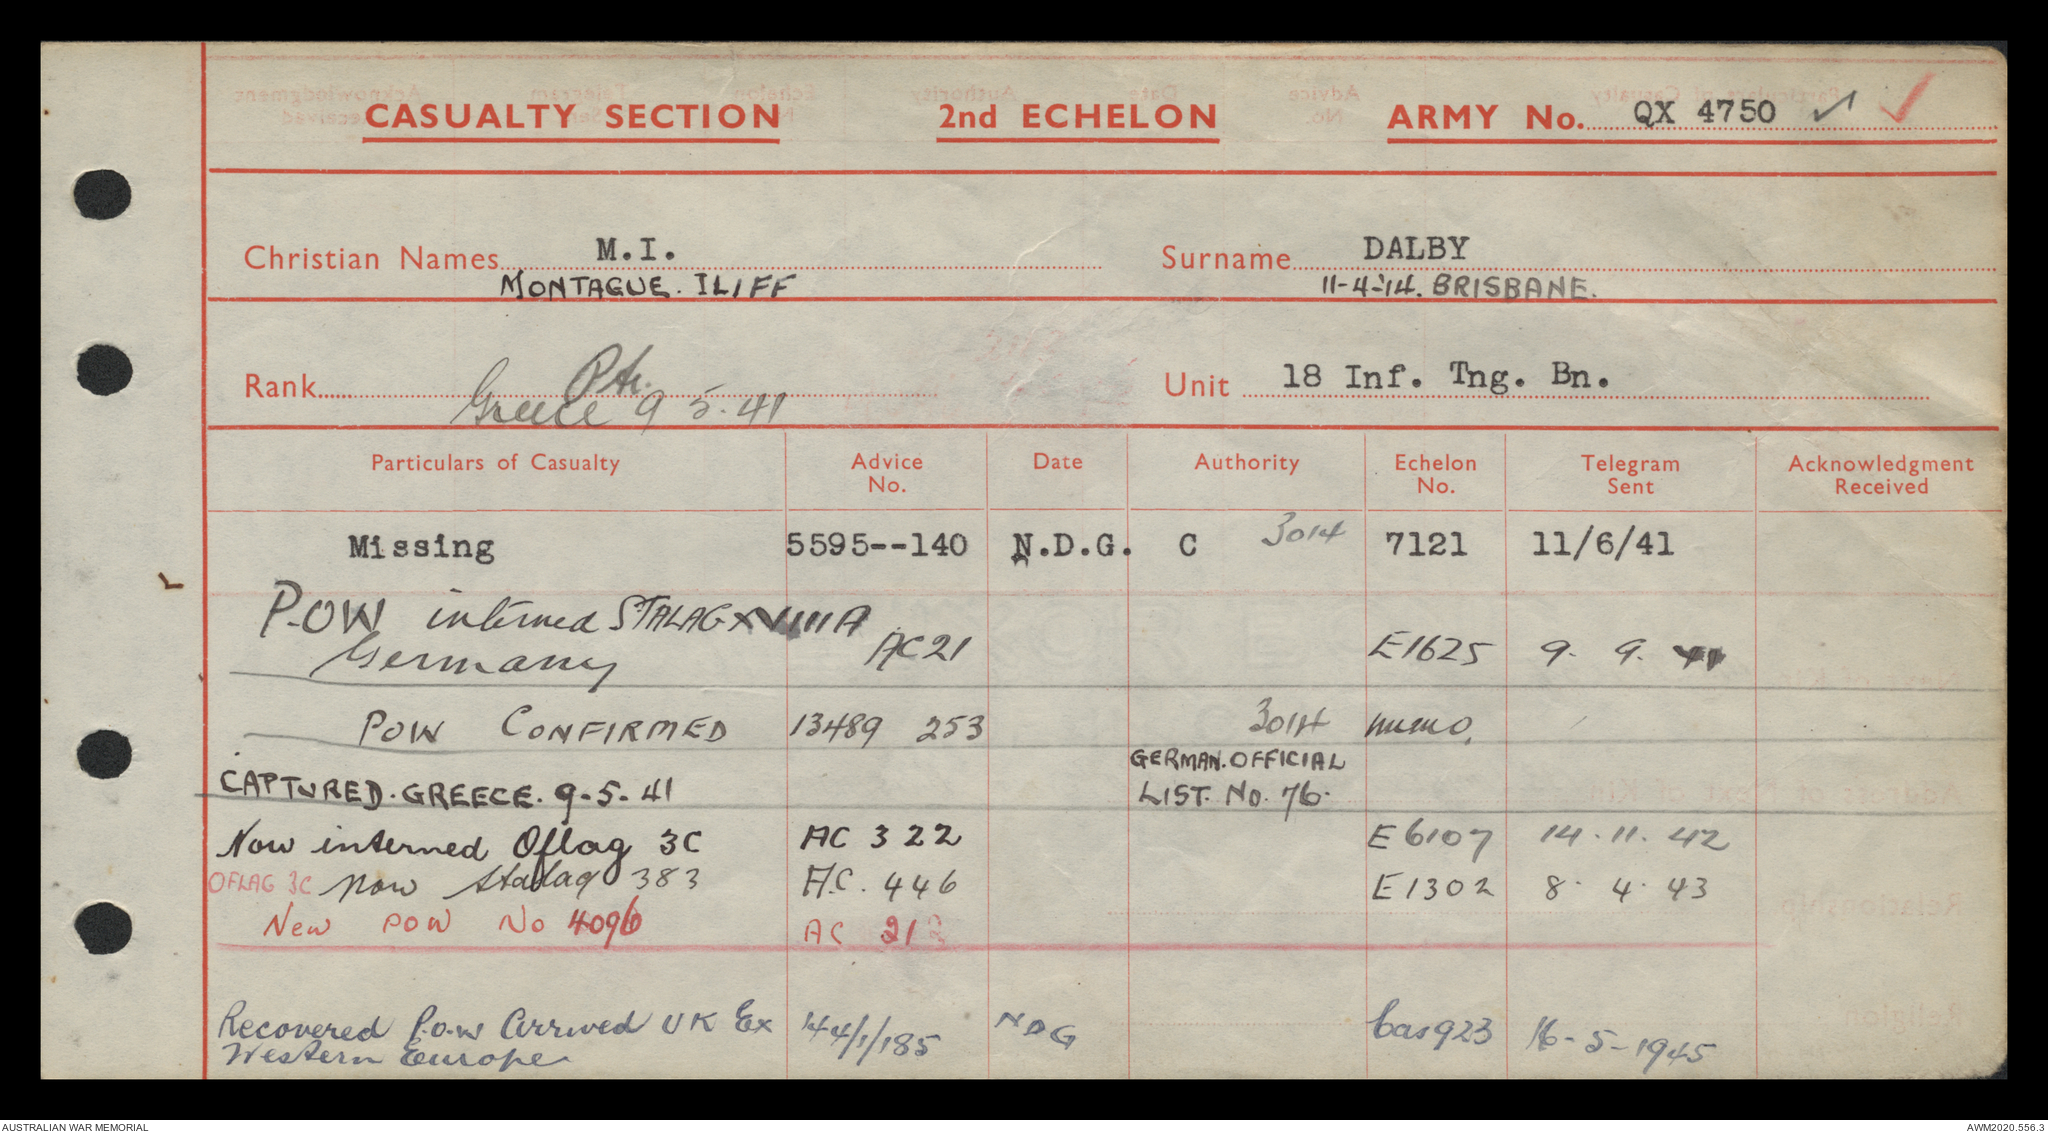 CASUALTY SECTION 2nd ECHELON ARMY No. QX 4750
Christian Names M.I. Surname DALBY
MONTAGUE. ILIFF 11-4-14. BRISBANE.
Rank Pte. Unit 18 Inf. Tng. Bn.
Greece 9 5. 41
Particulars of Casualty Advice No. Date Authority Echelon No. Telegram Sent Acknowledgment Received
Missing 5595--140 N.D.G. C 3014 7121 11/6/41
P.O.W interned STALAG XVIIIA
Germany AC21 E1625 9. 9. 41
POW CONFIRMED 13489 253 3014 memo.
GERMAN. OFFICIAL
CAPTURED. GREECE. 9-5-41 LIST. No. 76.
Now interned Oflag 3C AC 322 E6107 14.11.42
OFLAG 3C now Stalag 383 A.C. 446 E1302 8. 4. 43
New POW No 4096 AC 212
Recovered P.o.w Arrived UK Ex 44/1/185 NDG Cas923 16-5-1945
Western Europe
AUSTRALIAN WAR MEMORIAL AWM2020.556.3